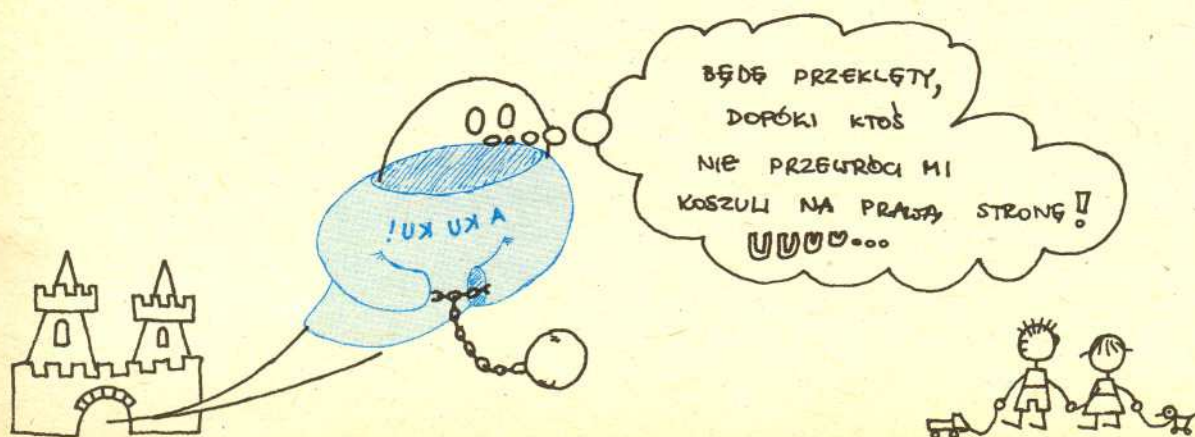 BĘDĘ PRZEKLĘTY,
DOPÓKI KTOŚ
NIE PRZEWRÓCI MI
KOSZULI NA PRAWĄ STRONĘ!
UUUU...
A KU KU!